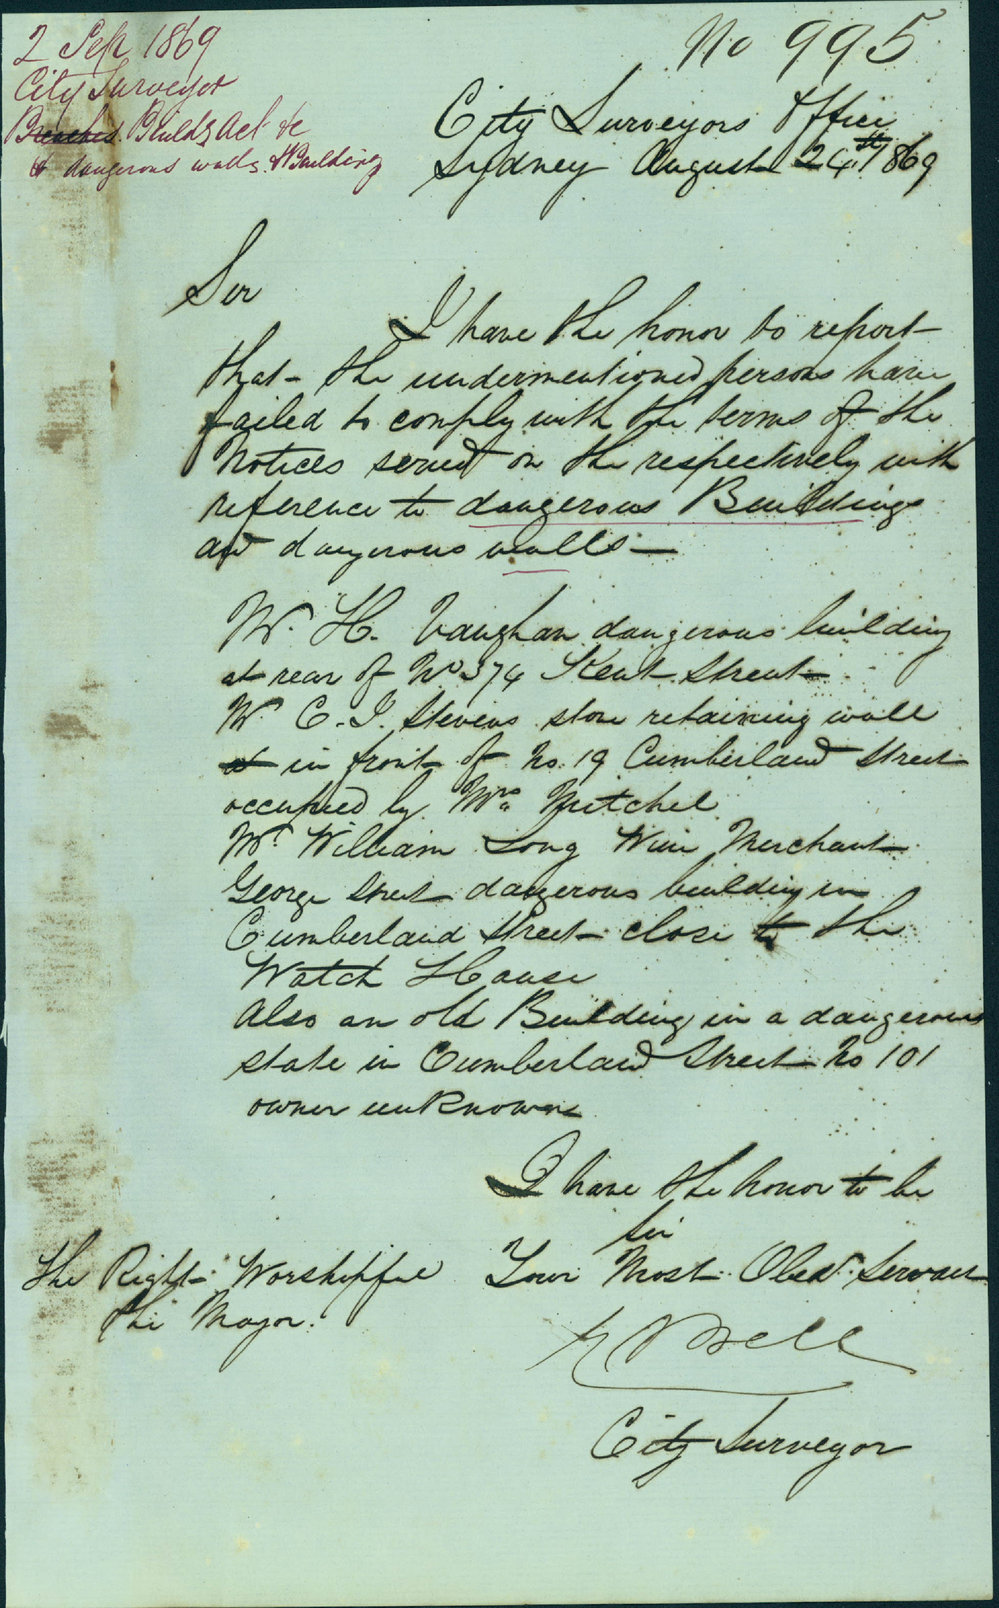 2 Sep 1869
City Surveyor
Breaches Buildg Act &c
& dangerous walls & Building
No 995
City Surveyors Office
Sydney August 24th 1869
Sir
I have the honor to report
that the undermentioned persons have
failed to comply with the terms of the
Notices served on the respectively with
reference to dangerous Buildings
and dangerous walls —
Mr. H. Vaughan dangerous building
at rear of No 374 Kent Street
Mr C. J. Stevens stone retaining wall
at in front of No. 19 Cumberland Street
occupied by Mrs Mitchel
Mr William Long Wine Merchant
George Street dangerous building in
Cumberland Street close to the
Watch House
Also an old Building in a dangerous
state in Cumberland Street No 101
owner unknown
I have the honor to be
Sir
Your Most Obedt Servant
The Right Worshipful
the Mayor.
Bell
City Surveyor